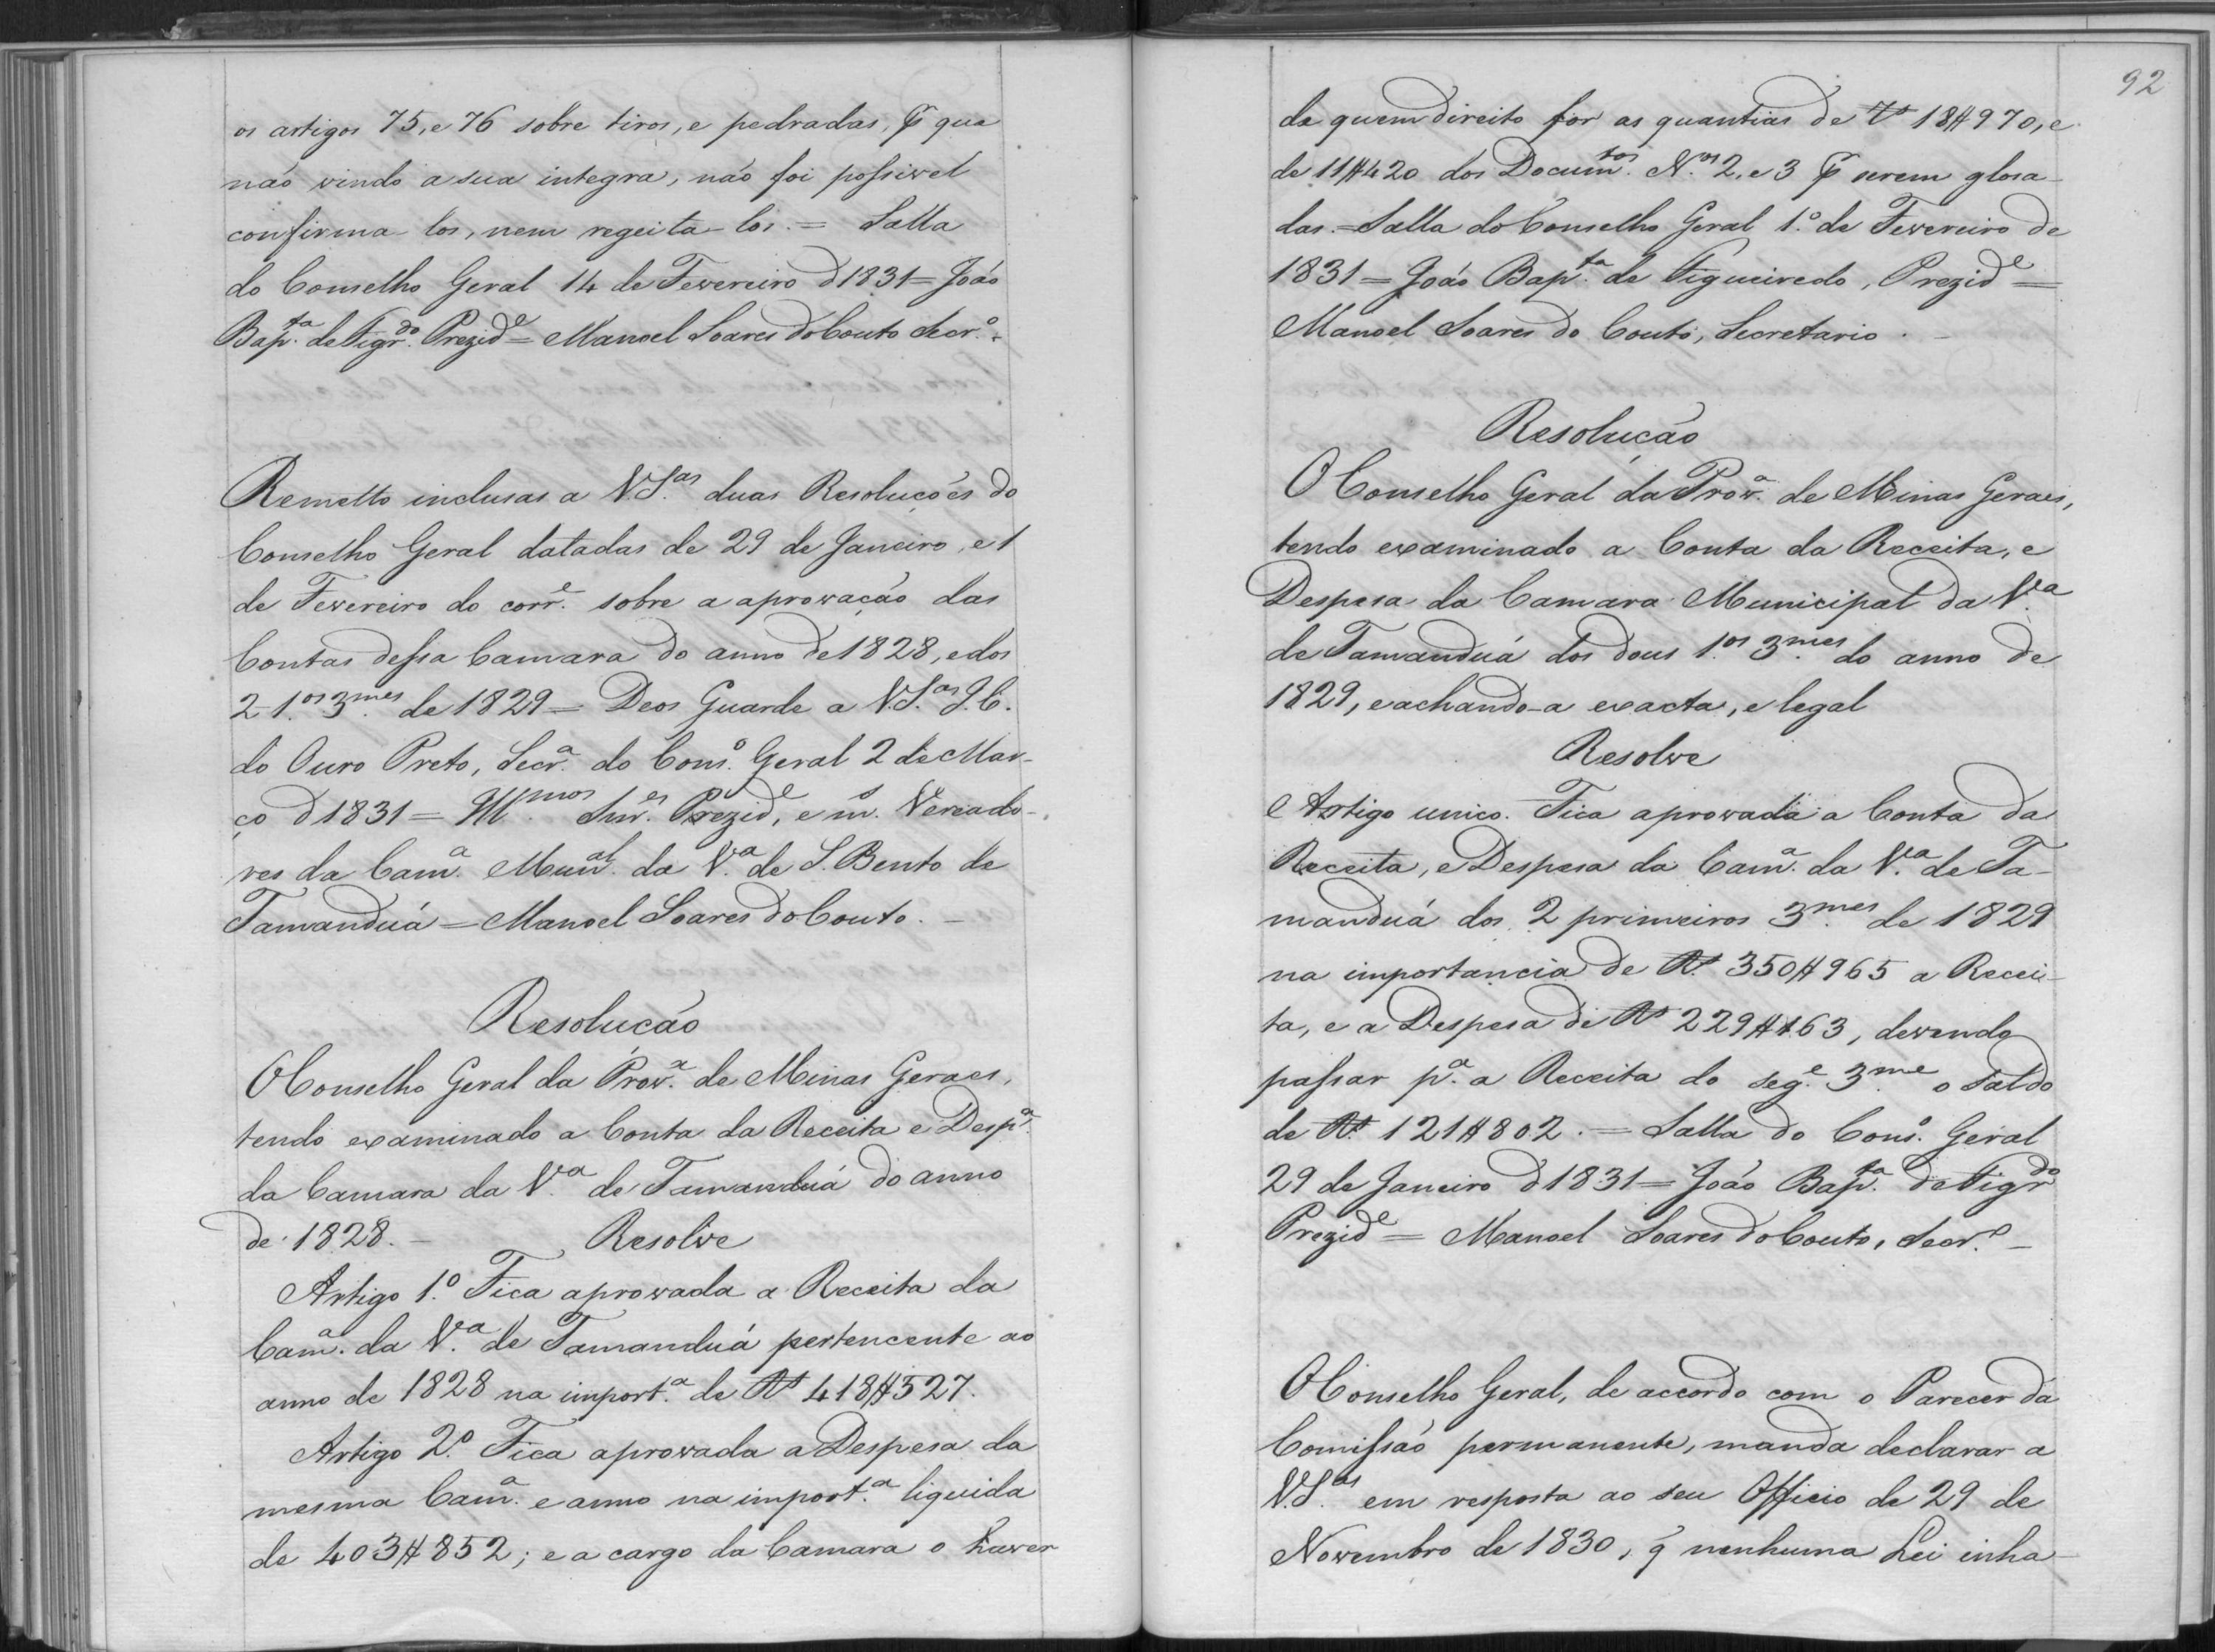 os artigos 75, e 76 sobre tiros, e pedradas, p que
não vindo a sua integra, não foi possivel
confirma-los, nem regeita-los. = Salla
do Conselho Geral 14 de Fevereiro d 1831 = João
Bap.ta de Figr.do Prezid.e = Manoel Soares do Couto Secr.o
Remetto inclusas a V.S.as duas Resoluções do
Conselho Geral datadas de 29 de Janeiro, e 1
de Fevereiro do corr.e sobre a aprovação das
Contas dessa Camara do anno de 1828, e dos
2 1.os 3.mes de 1829 = Deos Guarde a V.S.as I.C.
do Ouro Preto, Secr.a do Cons.o Geral 2 de Mar-
ço d 1831 = Ill.mos Snr.es Prezid.e, e m.s Vereado-
res da Cam.a Mun.al da V.a de S. Bento de
Tamanduá = Manoel Soares do Couto. _
Resolução
O Conselho Geral da Prov.a de Minas Geraes,
tendo examinado a Conta da Receita e Desp.a
da Camara da V.a de Tamanduá do anno
de 1828. _ Resolve
Artigo 1.o Fica aprovada a Receita da
Cam.a da V.a de Tamanduá pertencente ao
anno de 1828 na import.a de Rs 418$527.
Artigo 2.o Fica aprovada a Despesa da
mesma Cam.a e anno na import.a liquida
de 403$852; e a cargo da Camara o haver
92
de quem direito for as quantias de Rs 18$970, e
de 11$420 dos Docum.tos N.os 2, e 3 p serem glosa-
das. = Salla do Conselho Geral 1.o de Fevereiro de
1831 = João Bap.ta de Figueiredo, Prezid.e =
Manoel Soares do Couto, Secretario. _
Resolução
O Conselho Geral da Prov.a de Minas Geraes,
tendo examinado a Conta da Receita, e
Despesa da Camara Municipal da V.a
de Tamanduá dos dous 1.os 3.mes do anno de
1829, e achando-a exacta, e legal
Resolve
Artigo unico. Fica aprovada a Conta da
Receita, e Despesa da Cam.a da V.a de Ta-
manduá dos 2 primeiros 3.mes de 1829
na importancia de Rs 350$965 a Recei-
ta, e a Despesa de Rs 229$163, devendo
passar p.a a Receita do seg.e 3.me o saldo
de Rs 121$802. = Salla do Cons.o Geral
29 de Janeiro d 1831 = João Bap.ta de Figr.do
Prezid.e = Manoel Soares do Couto, Secr.o _
O Conselho Geral, de accordo com o Parecer da
Comissão permanente, manda declarar a
V.S.as em resposta ao seu Officio de 29 de
Novembro de 1830, q nenhuma Lei inha-